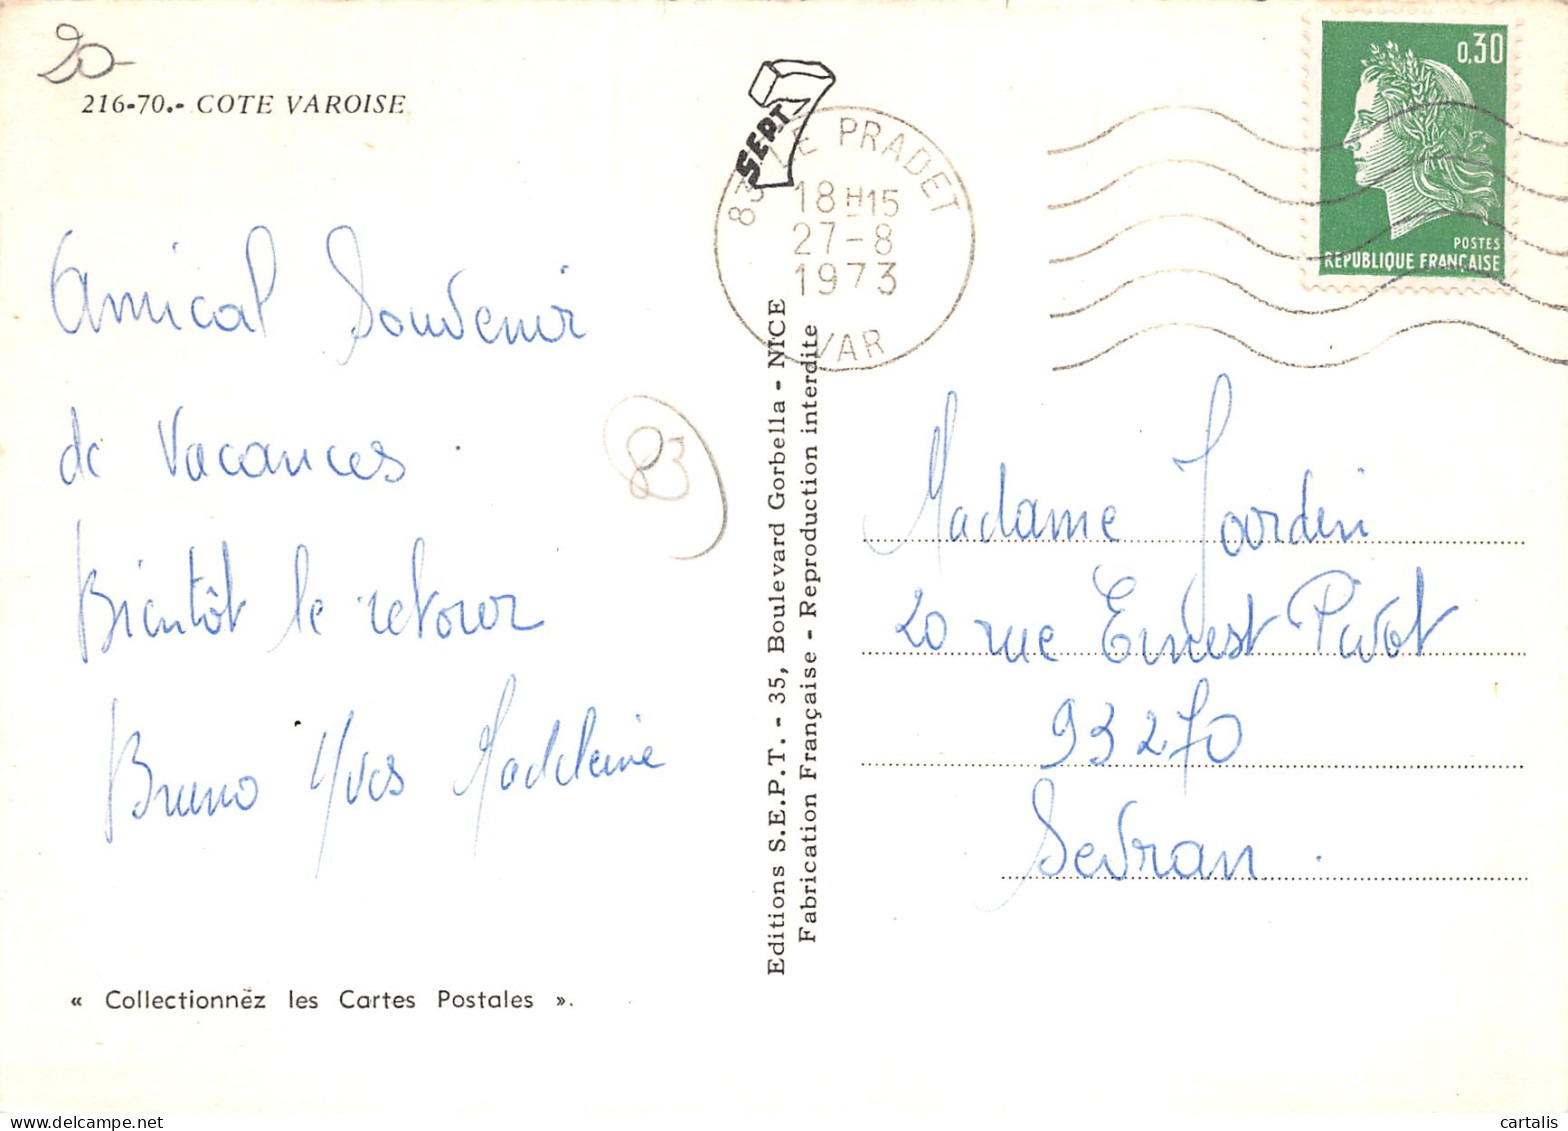 20-
216-70.- COTE VAROISE
Amical Souvenir
de Vacances.
Bientôt le retour
Bruno Yves Madeleine
« Collectionnëz les Cartes Postales ».
83
SEPT
83 LE PRADET
18H15
27-8
1973
VAR
Editions S.E.P.T. - 35, Boulevard Gorbella - NICE
Fabrication Française - Reproduction interdite
0,30
POSTES
REPUBLIQUE FRANÇAISE
Madame Jourdin
20 rue Ernest Pivot
93270
Sevran.
cartalis